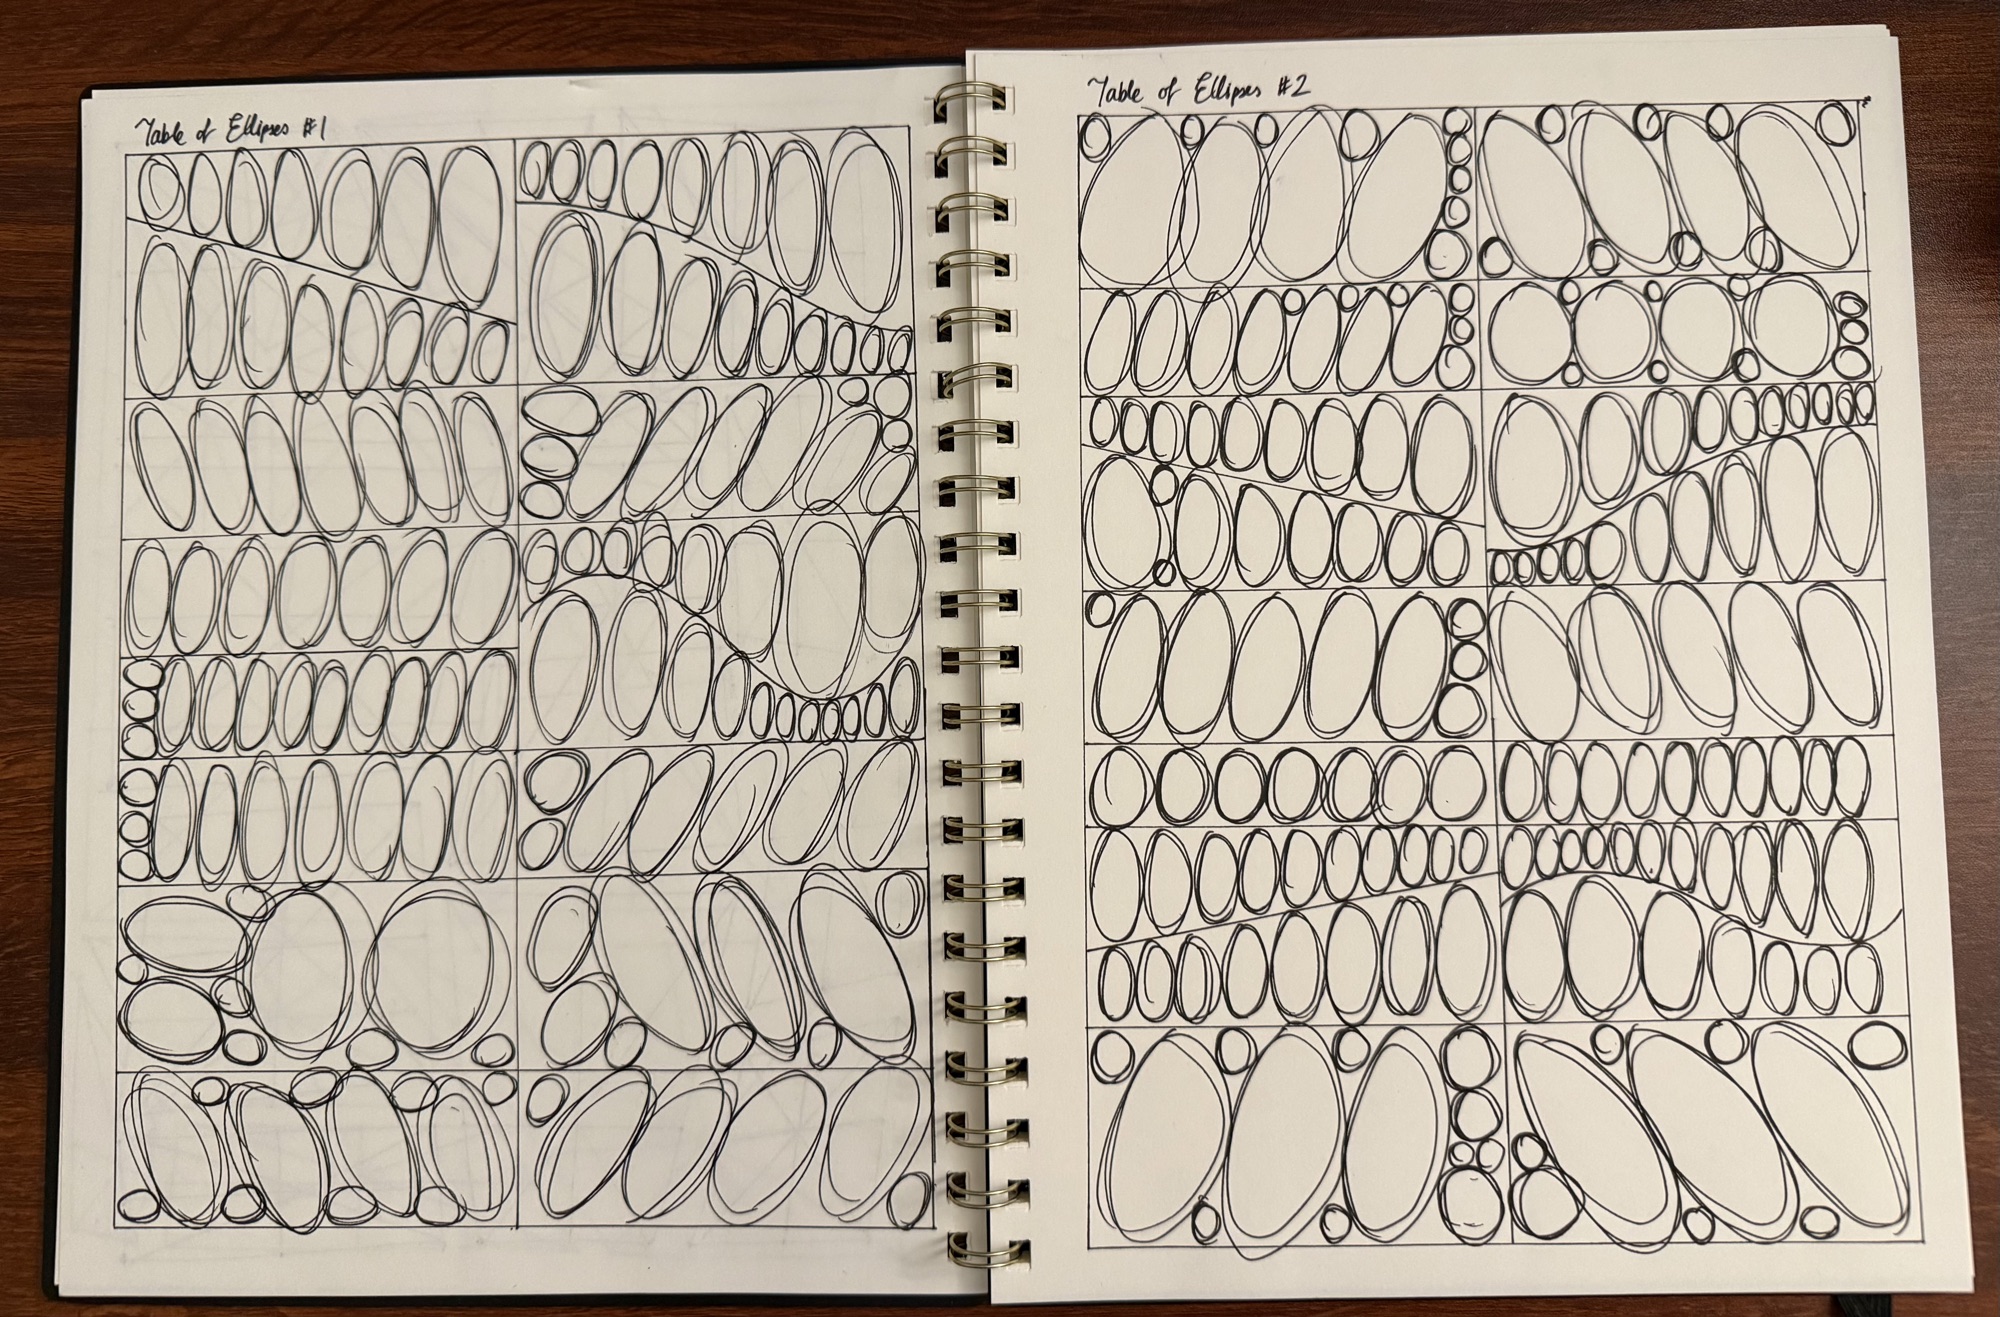 Table of Ellipses #1
Table of Ellipses #2